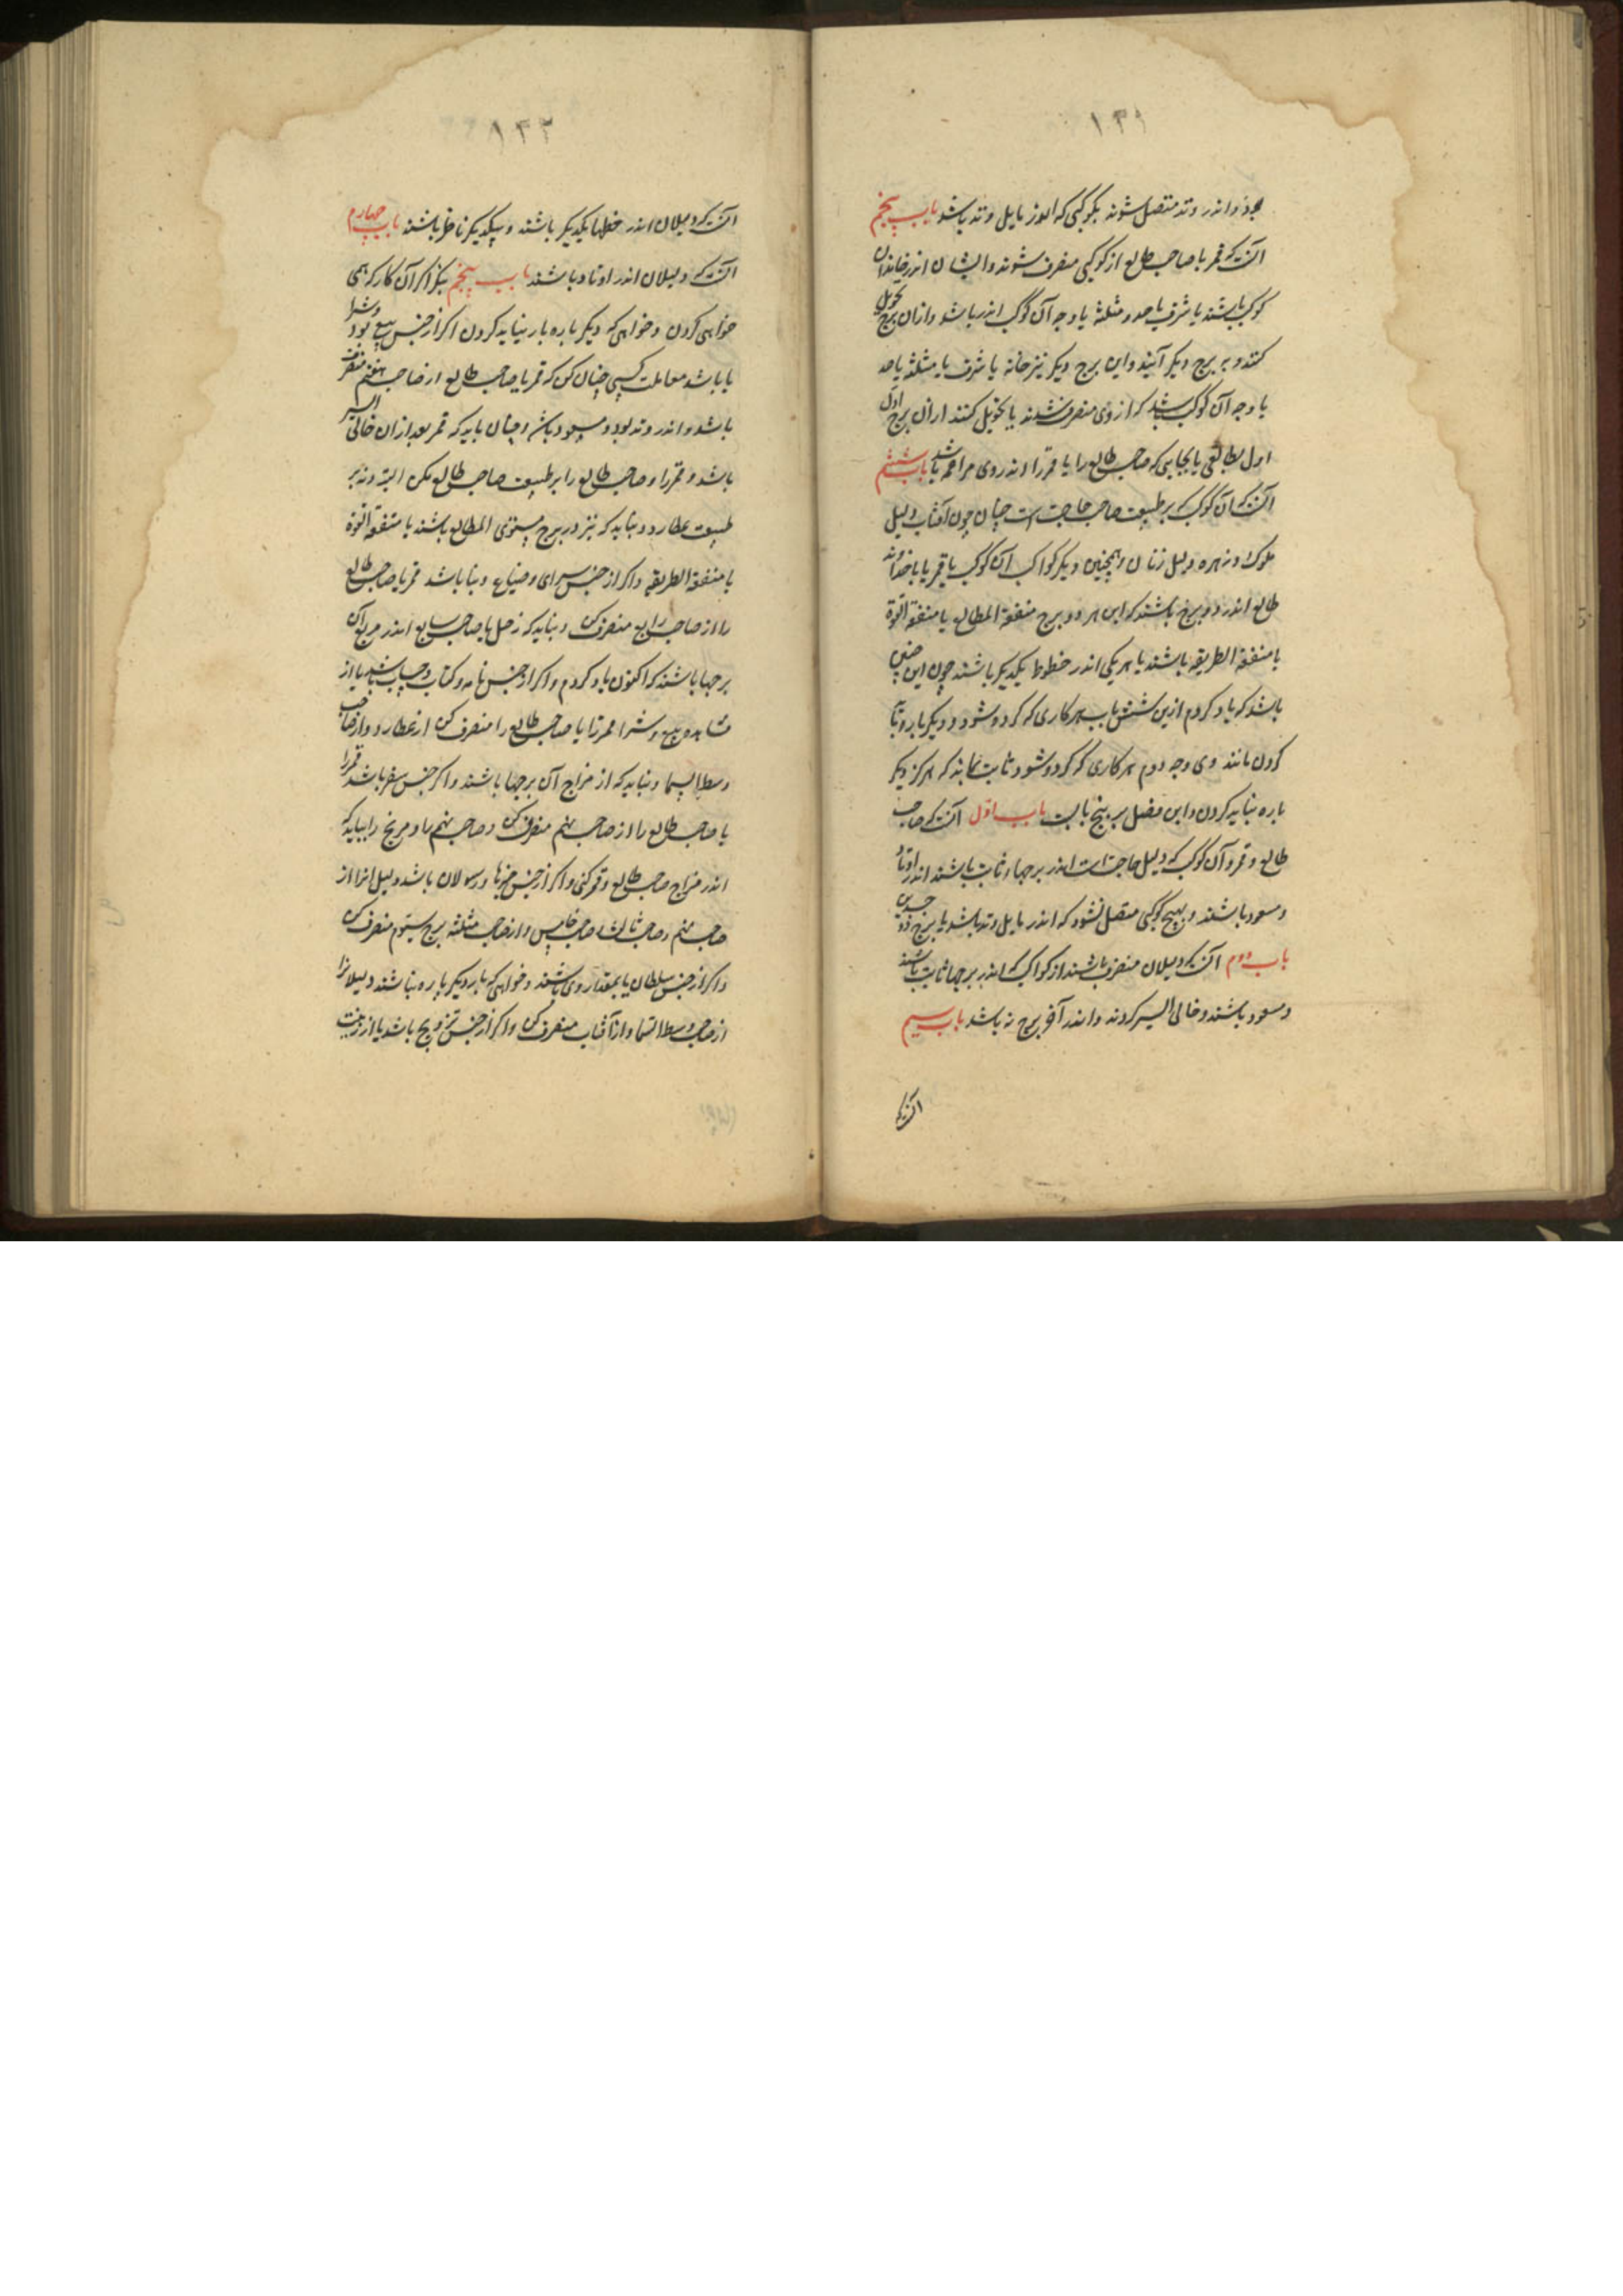 ۱۳۱
بجوزا و اندر وتد متصل شوند بکوکبی که اندر مایل وتد باشد باب پنجم
آنست که قمر یا صاحب طالع از کوکبی منصرف شوند و ایشان اندر خانه آن
کوکب باشند یا شرف یا حد و مثلثه یا وجه آن کوکب اندر باشد و ازان برج تحویل
کنند و ببرج دیگر آیند و این برج دیگر نیز خانه یا شرف یا مثلثه یا حد
یا وجه آن کوکب باشد که از وی منصرف شدند یا تحویل کنند ازان برج اول
اول بطالعی یا بجایی که صاحب طالع را یا قمر را اندر وی مزاحمه باشد باب ششم
آنست که آن کوکب که بر طبیعت صاحب حاجت است چنان چون آفتاب دلیل
ملوک و زهره دلیل زنان و همچنین دیگر کواکب آن کوکب با قمر یا با خداوند
طالع اندر دو برج باشند که این هر دو برج متفقة المطالع یا متفقة القوة
یا متفقة الطریقه باشند یا هر یکی اندر خطوط یکدیگر باشند چون این چنین
باشد که یاد کردم ازین شش باب هر کاری که کرده شود و دیگر باره تا
کردن مانند وی وجه دوم هر کاری که کرده شود ثابت نماید که هرگز دیگر
باره نباید کردن و این فصل بر پنج بابست باب اول آنست که صاحب
طالع و قمر و آن کوکب که دلیل حاجت است اندر برجهاء ثابت باشند اندر اوتاد
و مسعود باشند و بهیچ کوکبی متصل نشود که اندر مایل وتد باشد یا برج ذو جسدین
باب دوم آنست که دلیلان منصرف باشند از کواکب که اندر برجها ثابت باشند
و مسعود باشند و خالی السیر کردند و اندر آخر برج نه باشد باب سیم
آنست که
۱۳۲
آنست که دلیلان اندر خطها یکدیگر باشند و بیکدیگر ناظر باشند باب چهارم
آنست که دلیلان اندر اوتاد باشند باب پنجم بنکر اکر آن کار که همی
خواهی کردن و خواهی که دیگر باره باز نباید کردن اکر از جنس بیع و شرا بود
یا باشد معاملت کسی چنان کن که قمر یا صاحب طالع از صاحب هفتم منصرف
باشد و اندر وتد بود و مسعود باشد و چنان باید که قمر بعد ازان خالی السیر
باشد و قمر را و صاحب طالع را بر طبیعت صاحب طالع مکن البته و نه بر
طبیعت عطارد و نباید که نیز در برج مستوی المطالع باشند یا متفقة القوة
یا متفقة الطریقه و اکر از جنس سرای و ضیاع و بنا باشد قمر یا صاحب طالع
را از صاحب رابع منصرف کن و نباید که زحل یا صاحب سابع اندر مربع آن
برجها باشند که اکنون یاد کردم و اکر از جنس نامه و کتاب و حساب باشد یا از
مشاهده و بیع و شرا قمر را یا صاحب طالع را منصرف کن از عطارد و از صاحب
وسط السما و نباید که از مزاج آن برجها باشند و اکر جنس سفر باشد قمر را
یا صاحب طالع را از صاحب نهم منصرف کن و صاحب نهم را و مریخ را نباید که
اندر مزاج صاحب طالع و قمر کنی و اکر از جنس خبرها و رسولان باشد دلیل انرا از
صاحب نهم و صاحب ثالث یا صاحب خامس و از صاحب مثلثه برج سیوم منصرف کن
و اکر از جنس سلطان یا بمقدار وی باشند و خواهی که بار دیگر باره نباشند دلیلانرا
از صاحب وسط السما و از آفتاب منصرف کن و اکر از جنس تزویج باشد یا از زینت